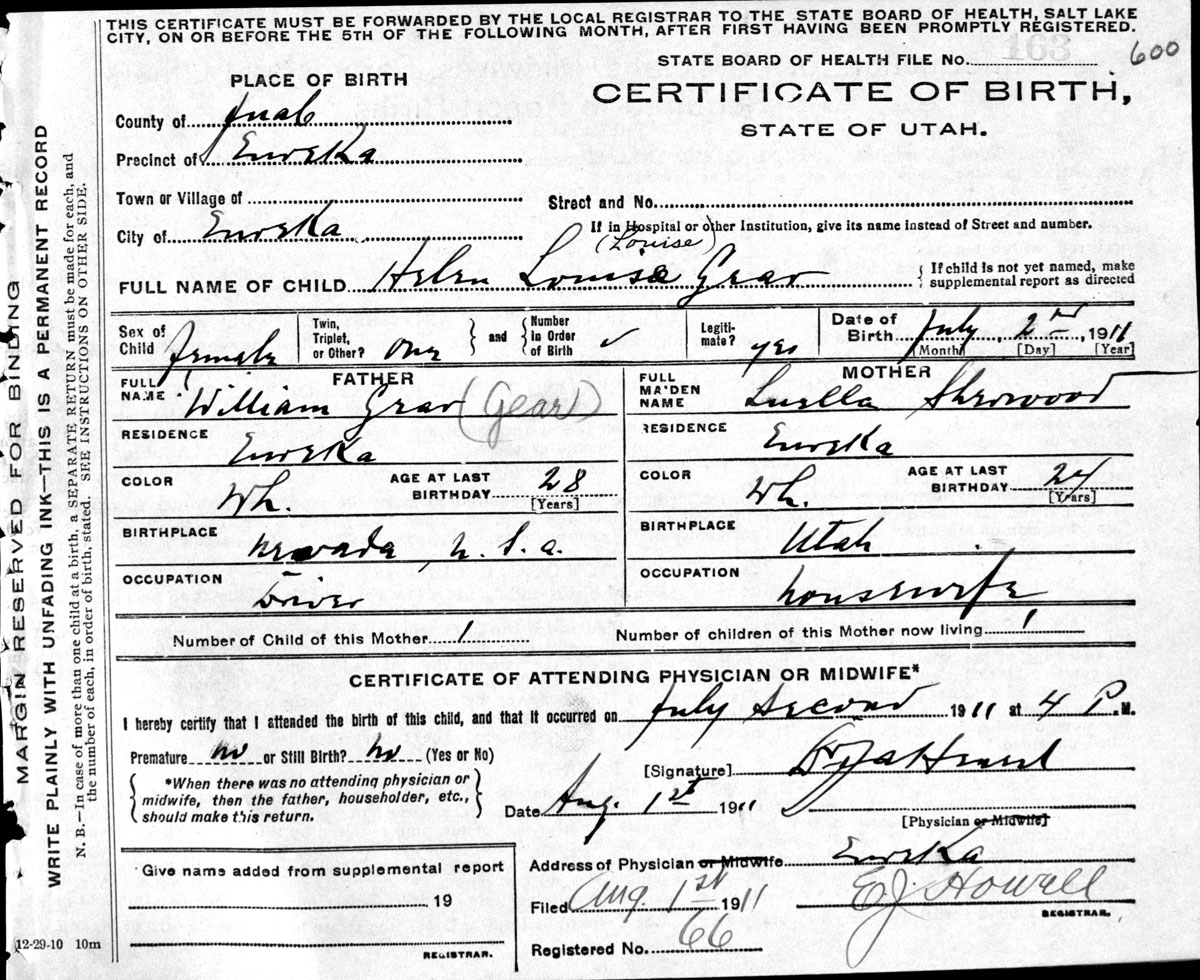 THIS CERTIFICATE MUST BE FORWARDED BY THE LOCAL REGISTRAR TO THE STATE BOARD OF HEALTH, SALT LAKE
CITY, ON OR BEFORE THE 5TH OF THE FOLLOWING MONTH, AFTER FIRST HAVING BEEN PROMPTLY REGISTERED.
163
600
STATE BOARD OF HEALTH FILE No.
PLACE OF BIRTH
CERTIFICATE OF BIRTH,
STATE OF UTAH.
County of Juab
Precinct of Eureka
Town or Village of
Street and No.
City of Eureka
If in Hospital or other Institution, give its name instead of Street and number.
(Louise)
FULL NAME OF CHILD Helen Louisa Gear
{ If child is not yet named, make
supplemental report as directed
Sex of Child female
Twin, Triplet, or Other? one
} and { Number in Order of Birth ✓
Legiti-mate? yes
Date of Birth July, 2nd, 1911
[Month] [Day] [Year]
FATHER
FULL NAME William Gear (Gear)
RESIDENCE Eureka
COLOR Wh.
AGE AT LAST BIRTHDAY 28
[Years]
BIRTHPLACE Nevada, U.S.a.
OCCUPATION Driver
MOTHER
FULL MAIDEN NAME Luella Sherwood
RESIDENCE Eureka
COLOR Wh.
AGE AT LAST BIRTHDAY 24
[Years]
BIRTHPLACE Utah
OCCUPATION housewife
Number of Child of this Mother 1
Number of children of this Mother now living 1
CERTIFICATE OF ATTENDING PHYSICIAN OR MIDWIFE*
I hereby certify that I attended the birth of this child, and that it occurred on July Second 1911 at 4 P. M.
Premature no or Still Birth? no (Yes or No)
{ *When there was no attending physician or
midwife, then the father, householder, etc.,
should make this return. }
[Signature]
Date Aug. 1st 1911
[Physician or Midwife]
Address of Physician or Midwife Eureka
Filed Aug. 1st 1911
EJ Howell
REGISTRAR.
Registered No. 66
Give name added from supplemental report
19
REGISTRAR.
12-29-10 10m
MARGIN RESERVED FOR BINDING
WRITE PLAINLY WITH UNFADING INK—THIS IS A PERMANENT RECORD
N. B.—In case of more than one child at a birth, a SEPARATE RETURN must be made for each, and
the number of each, in order of birth, stated. SEE INSTRUCTIONS ON OTHER SIDE.